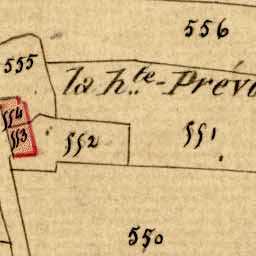 556
555
la h.te-Prévo
554
553
552
551
550